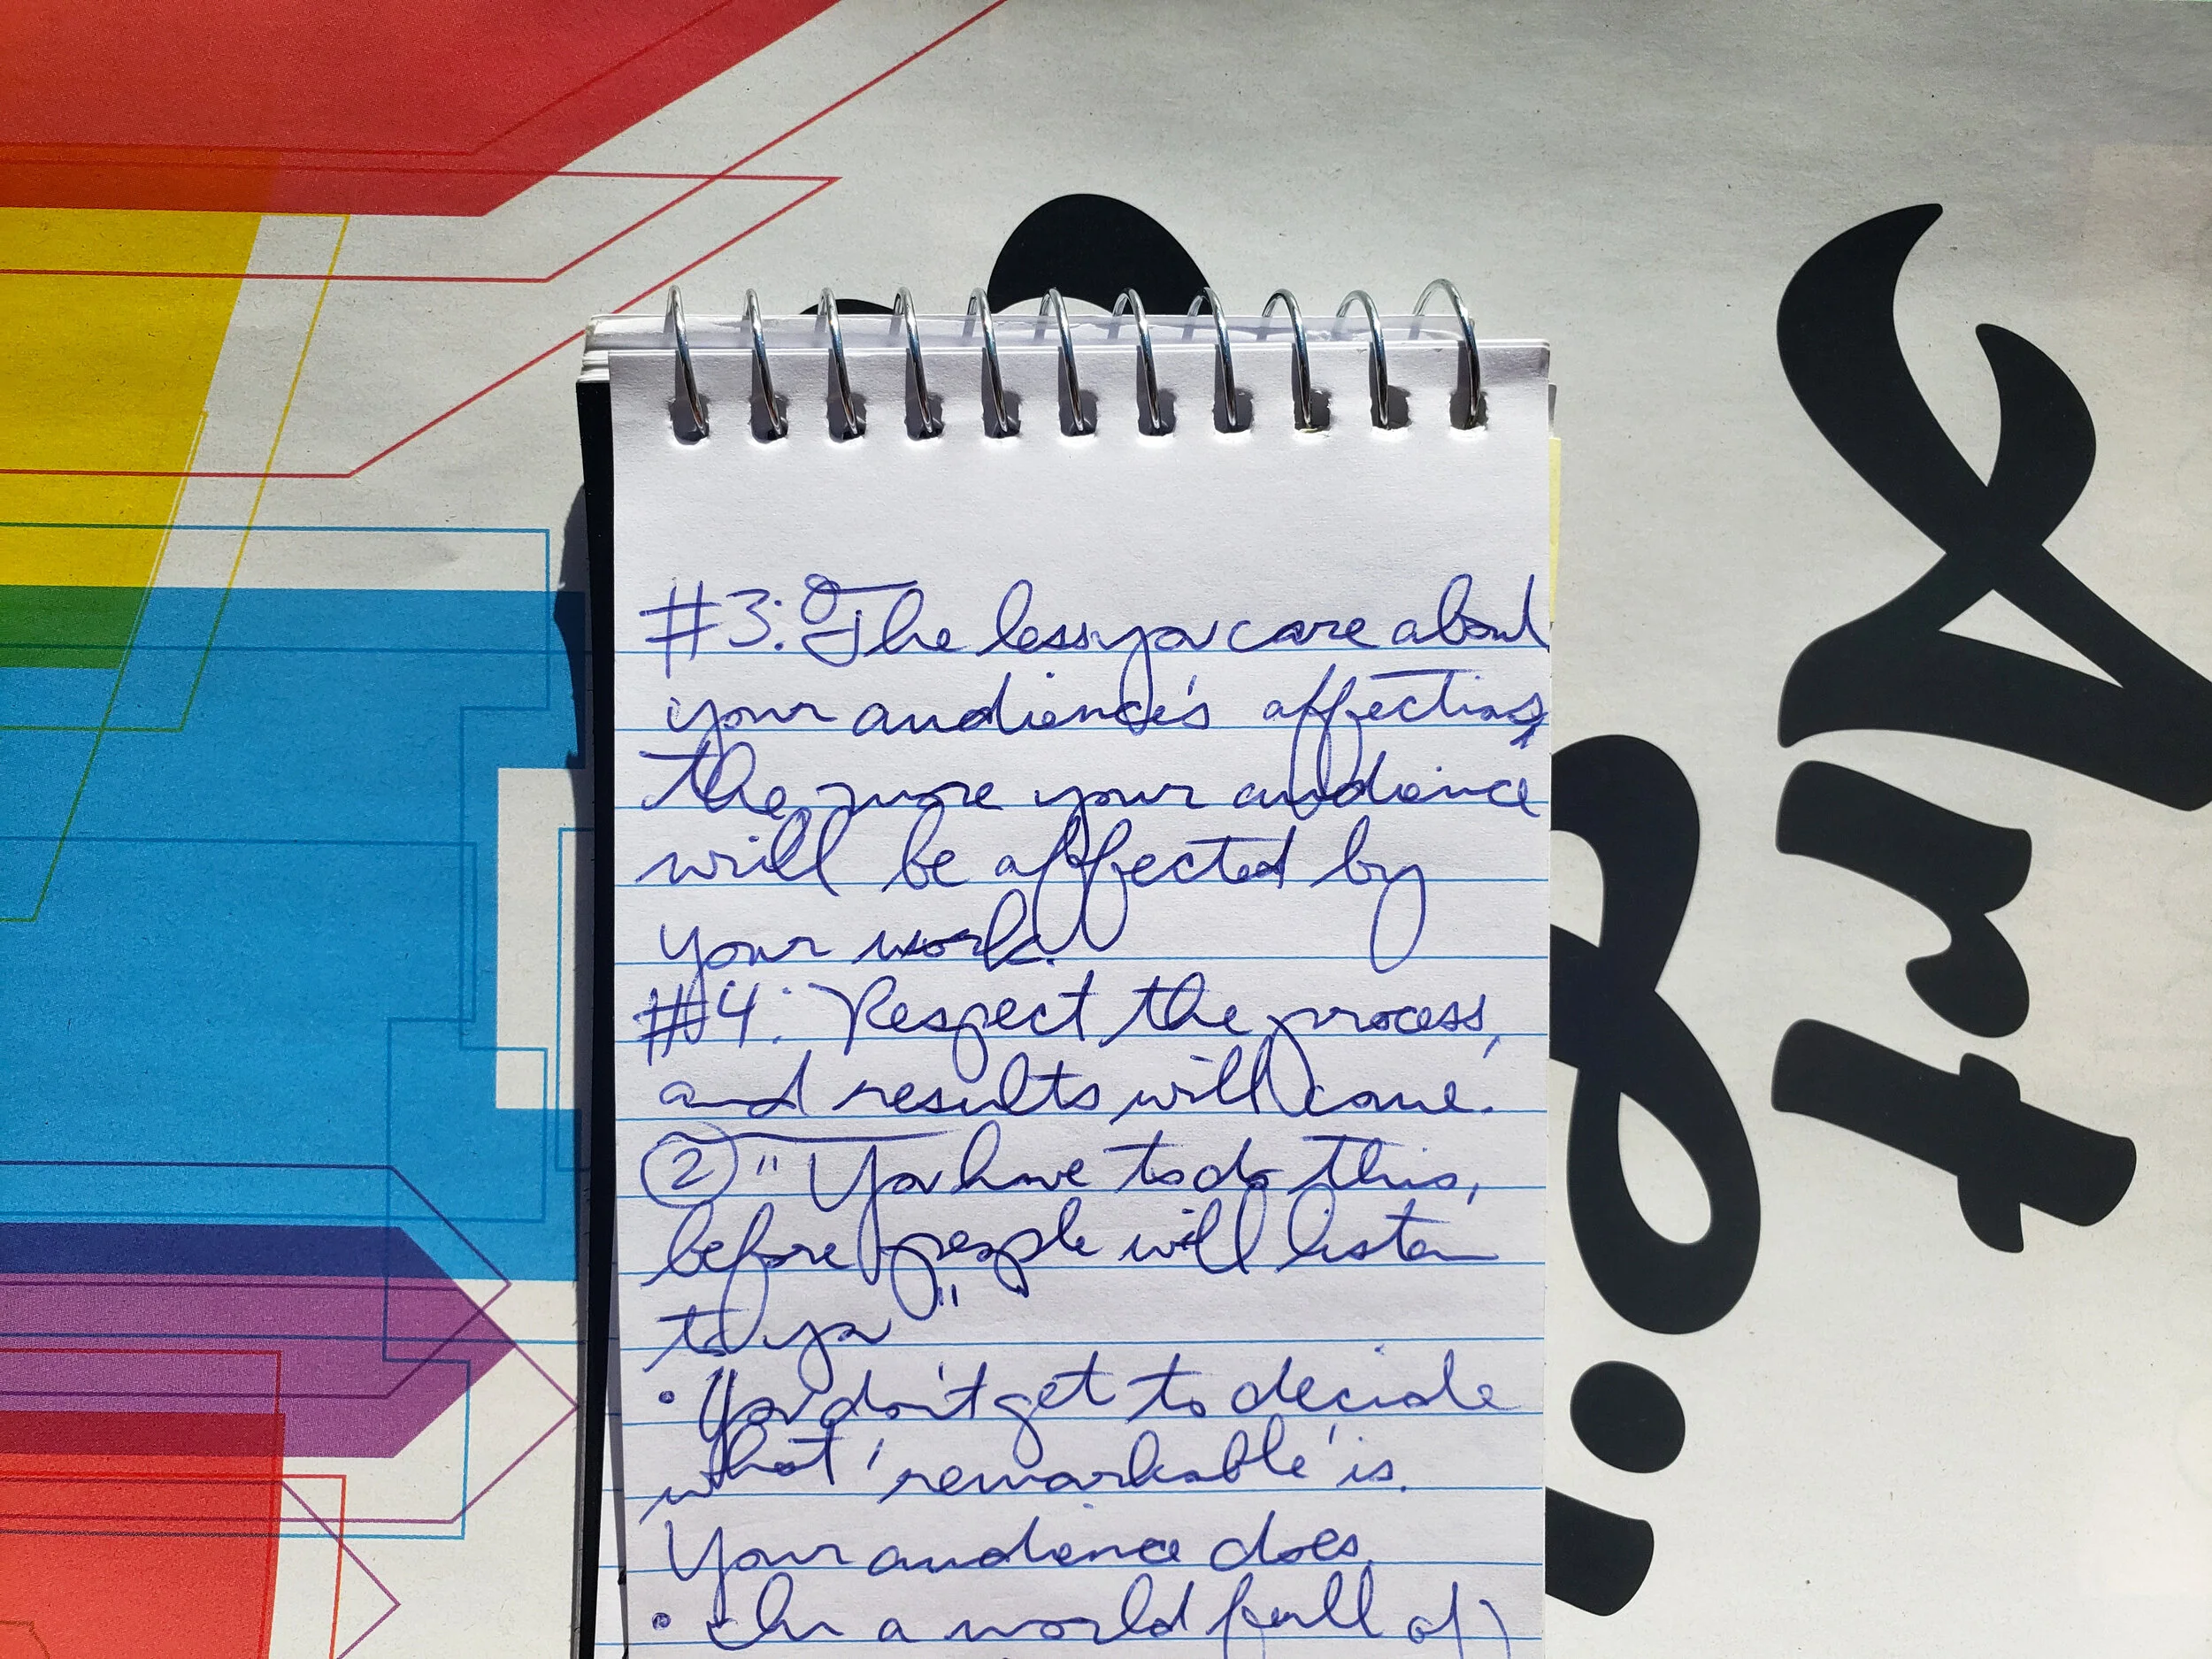 #3: The less you care about
your audience's affections,
the more your audience
will be affected by
your work.
#4: Respect the process,
and results will come.
② "You have to do this,
before people will listen
to you"
• You don't get to decide
what 'remarkable' is.
Your audience does.
• In a world full of
Art